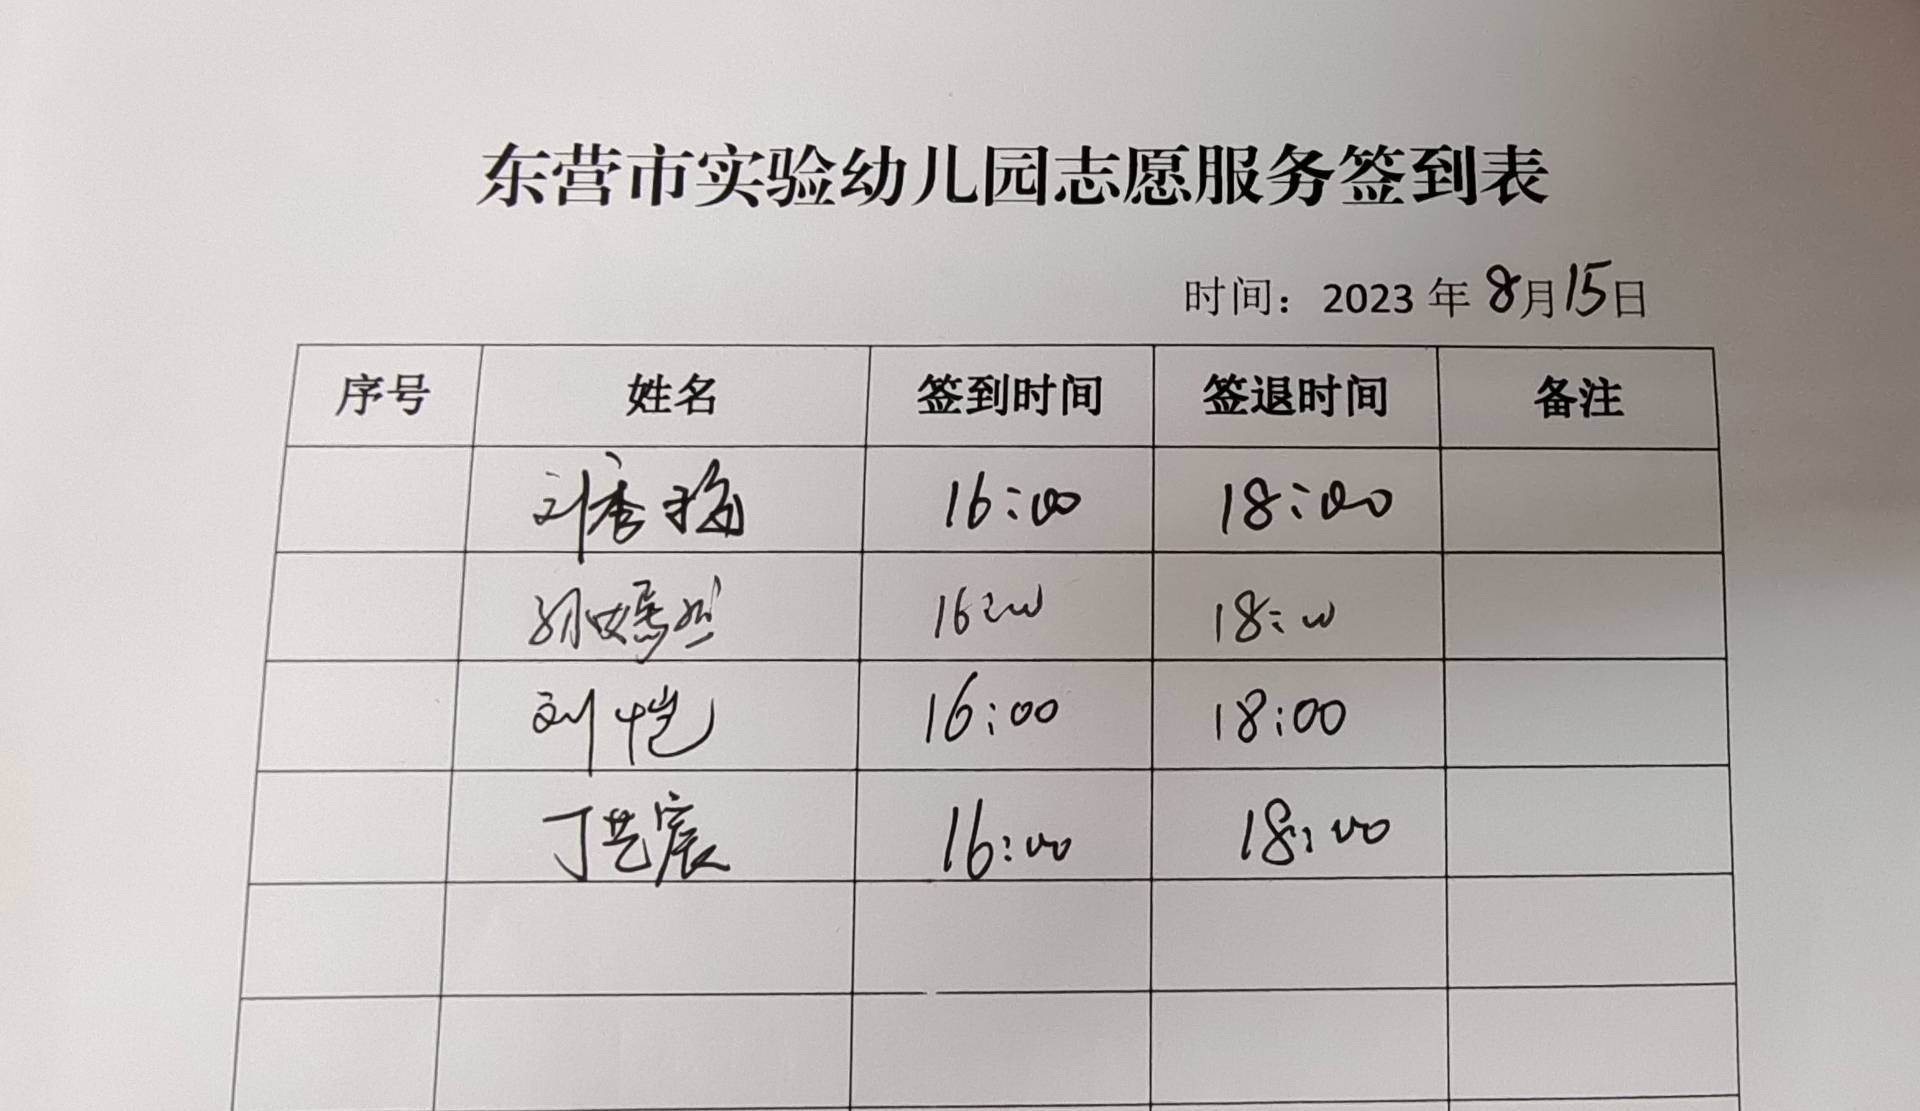 东营市实验幼儿园志愿服务签到表
时间：2023年8月15日
序号 姓名 签到时间 签退时间 备注
刘秀梅 16:00 18:00
孙嫣然 16:00 18:00
刘恺 16:00 18:00
丁艺宸 16:00 18:00